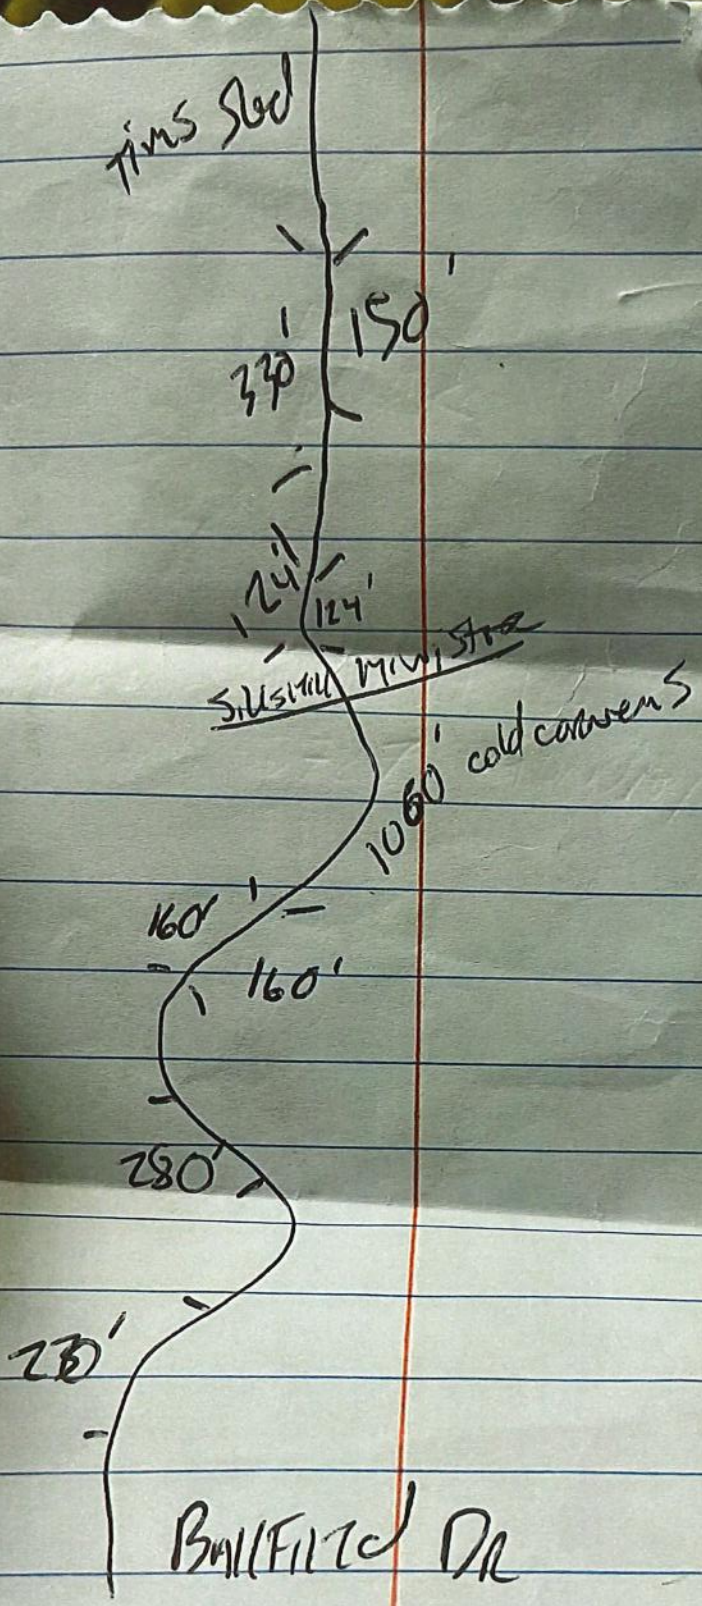 Tims Sled
150'
330'
124'
124'
Sills Mill Mini Store
1060' cold canvers
160'
160'
280'
230'
BallField DR